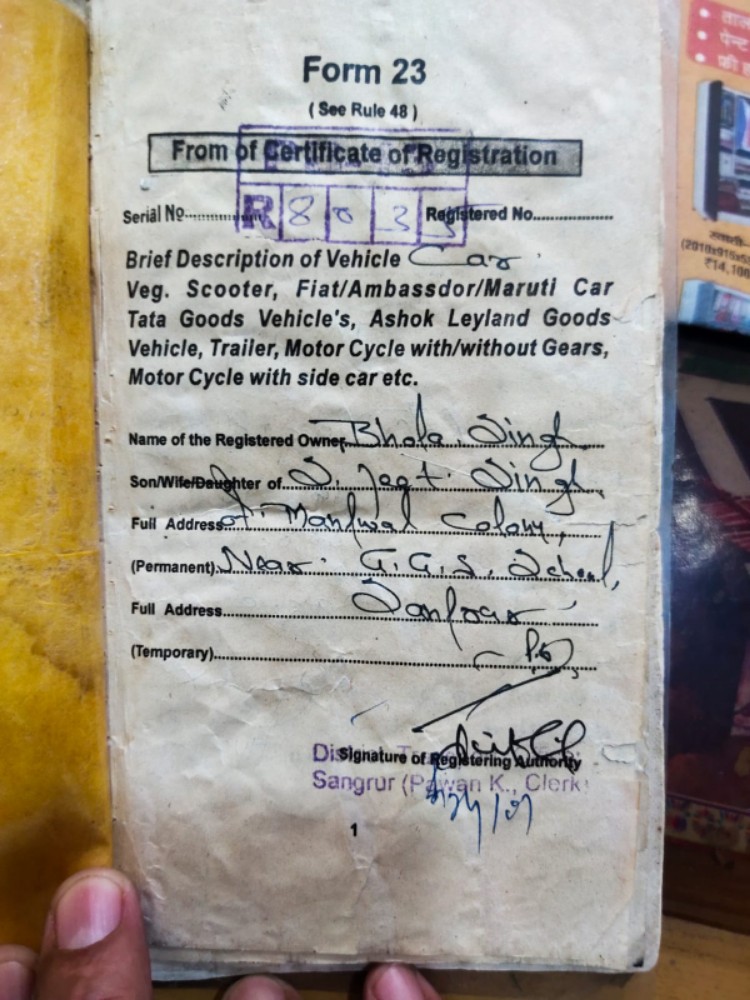 Form 23
( See Rule 48 )
From of Certificate of Registration
Serial No............ R 8 0 3 5 Registered No...............
Brief Description of Vehicle Car
Veg. Scooter, Fiat/Ambassdor/Maruti Car
Tata Goods Vehicle's, Ashok Leyland Goods
Vehicle, Trailer, Motor Cycle with/without Gears,
Motor Cycle with side car etc.
Name of the Registered Owner Bhola Singh
Son/Wife/Daughter of S. Jagt. Singh
Full Address Colony,
(Permanent). Near. G.G.S. School,
Full Address
(Temporary) (Pb)
Signature of Registering Authority
Sangrur (Pawan K., Clerk)
1
₹14,100